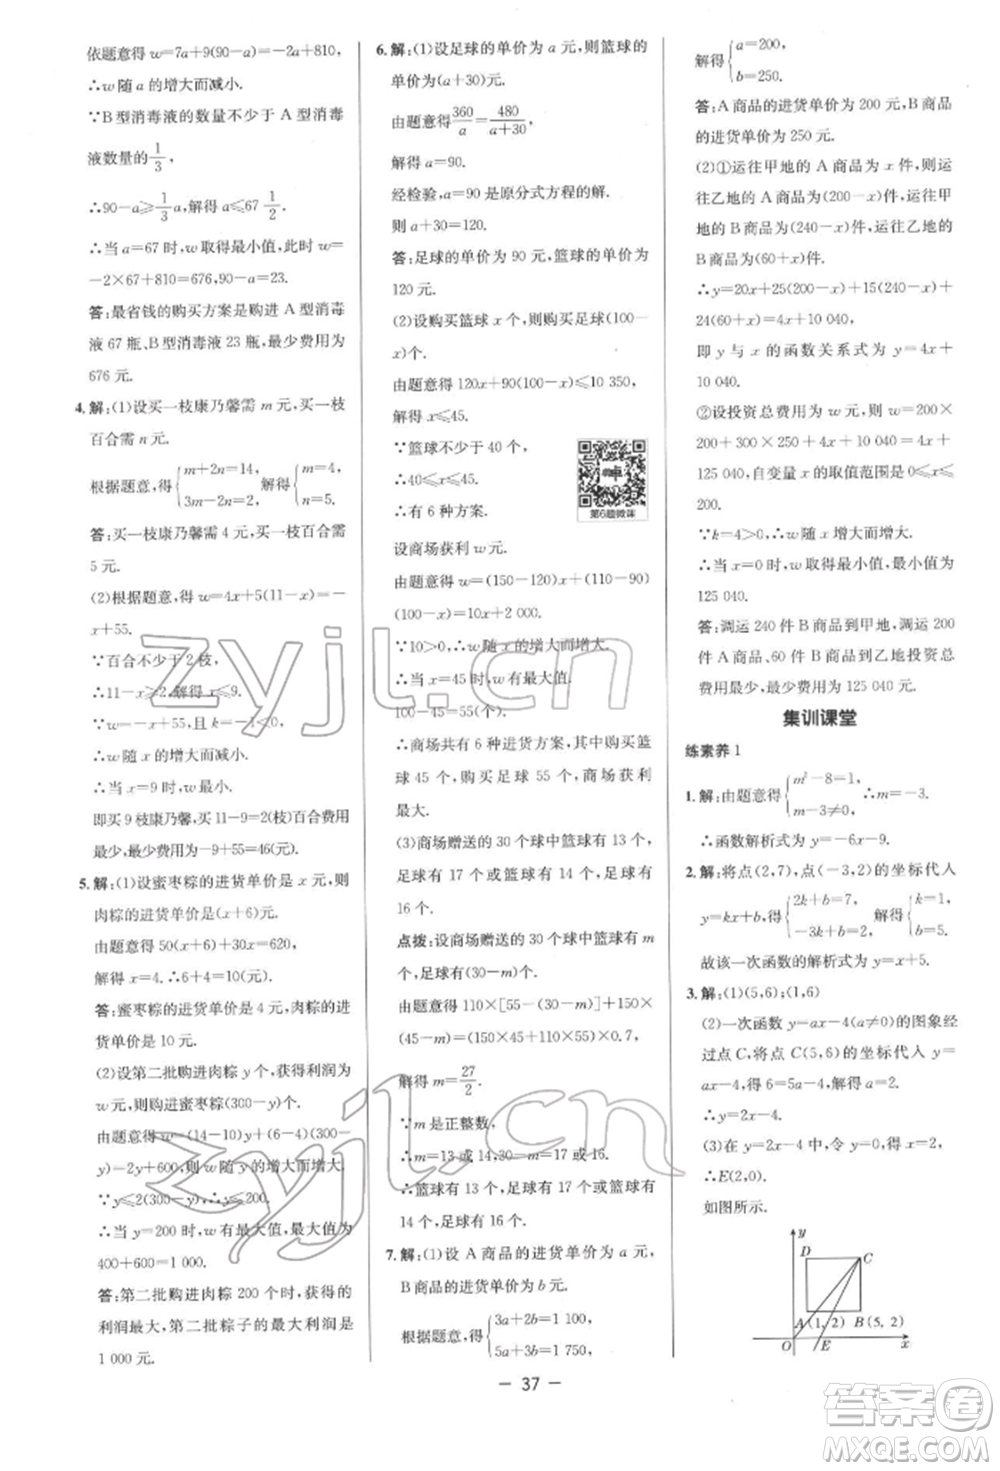 依题意得 w=7a+9(90-a)=-2a+810,
∴w 随 a 的增大而减小.
∵B 型消毒液的数量不少于 A 型消毒
液数量的 1/3,
∴90-a≥1/3 a,解得 a≤67 1/2.
∴当 a=67 时,w 取得最小值,此时 w=
-2×67+810=676,90-a=23.
答:最省钱的购买方案是购进 A 型消毒
液 67 瓶、B 型消毒液 23 瓶,最少费用为
676 元.
4.解:(1)设买一枝康乃馨需 m 元,买一枝
百合需 n 元.
根据题意,得{m+2n=14, 3m-2n=2, 解得{m=4, n=5.
答:买一枝康乃馨需 4 元,买一枝百合需
5 元.
(2)根据题意,得 w=4x+5(11-x)=
-x+55.
∵百合不少于 2 枝,
∴11-x≥2,解得 x≤9.
∵w=-x+55,k=-1<0,
∴w 随 x 的增大而减小.
∴当 x=9 时,w 最小.
即买 9 枝康乃馨,买 11-9=2(枝)百合费用
最少,最少费用为-9+55=46(元).
5.解:(1)设蜜枣粽的进货单价是 x 元,则
肉粽的进货单价是(x+6)元.
由题意得 50(x+6)+30x=620,
解得 x=4.∴6+4=10(元).
答:蜜枣粽的进货单价是 4 元,肉粽的进
货单价是 10 元.
(2)设第二批购进肉粽 y 个,获得利润为 w
元,则购进蜜枣粽(300-y)个.
由题意得 w=(14-10)y+(6-4)(300-
y)=2y+600,则 w 随 y 的增大而增大.
∵y≤2(300-y),∴y≤200.
∴当 y=200 时,w 有最大值,最大值为
400+600=1 000.
答:第二批购进肉粽 200 个时,获得的
利润最大,第二批粽子的最大利润是
1 000 元.
6.解:(1)设足球的单价为 a 元,则篮球的
单价为(a+30)元.
由题意得360/a=480/(a+30),
解得 a=90.
经检验,a=90 是原分式方程的解.
则 a+30=120.
答:足球的单价为 90 元,篮球的单价为
120 元.
(2)设购买篮球 x 个,则购买足球(100-
x)个.
由题意得 120x+90(100-x)≤10 350,
解得 x≤45.
∵篮球不少于 40 个,
∴40≤x≤45.
∴有 6 种方案.
第6题微课
设商场获利 w 元.
由题意得 w=(150-120)x+(110-90)
(100-x)=10x+2 000,
∵10>0,∴w 随 x 的增大而增大.
∴当 x=45 时,w 有最大值.
100-45=55(个).
∴商场共有 6 种进货方案,其中购买篮
球 45 个,购买足球 55 个,商场获利
最大.
(3)商场赠送的 30 个球中篮球有 13 个,
足球有 17 个或篮球有 14 个,足球有
16 个.
点拨:设商场赠送的 30 个球中篮球有 m
个,足球有(30-m)个.
由题意得 110×[55-(30-m)]+150×
(45-m)=(45×150+110×55)×0.7,
解得 m=27/2.
∵m 是正整数,
∴m=13 或 14,30-m=17 或 16.
∴篮球有 13 个,足球有 17 个或篮球有
14 个,足球有 16 个.
7.解:(1)设 A 商品的进货单价为 a 元,
B 商品的进货单价为 b 元.
根据题意,得{3a+2b=1 100, 5a+3b=1 750,
解得{a=200, b=250.
答:A 商品的进货单价为 200 元,B 商品
的进货单价为 250 元.
(2)①运往甲地的 A 商品为 x 件,则运
往乙地的 A 商品为(200-x)件,运往甲
地的 B 商品为(240-x)件,运往乙地的
B 商品为(60+x)件.
∴y=20x+25(200-x)+15(240-x)+
24(60+x)=4x+10 040,
即 y 与 x 的函数关系式为 y=4x+
10 040.
②设投资总费用为 w 元,则 w=200×
200+300×250+4x+10 040=4x+
125 040,自变量 x 的取值范围是 0≤x≤
200.
∵k=4>0,∴w 随 x 的增大而增大.
∴当 x=0 时,w 有最小值,最小值为
125 040.
答:调运 240 件 B 商品到甲地,调运 200
件 A 商品、60 件 B 商品到乙地投资总
费用最少,最少为 125 040 元.
集训课堂
练素养 1
1.解:由题意得{m²-8=1, m-3≠0, ∴m=-3.
∴函数解析式为 y=-6x-9.
2.解:将点(2,7),点(-3,2)的坐标代入
y=kx+b,得{2k+b=7, -3k+b=2, 解得{k=1, b=5.
故该一次函数的解析式为 y=x+5.
3.解:(1)(5,6);(1,6)
(2)一次函数 y=ax-4(a≠0)的图象经
过点 C,将点 C(5,6)的坐标代入 y=
ax-4,得 6=5a-4,解得 a=2.
∴y=2x-4.
(3)在 y=2x-4 中,令 y=0,得 x=2,
∴E(2,0).
如图所示.
y
D C
A(1,2) B(5,2)
O E x
- 37 -
zyjl.cn
zyjl.cn
答案圈
MXQE.COM